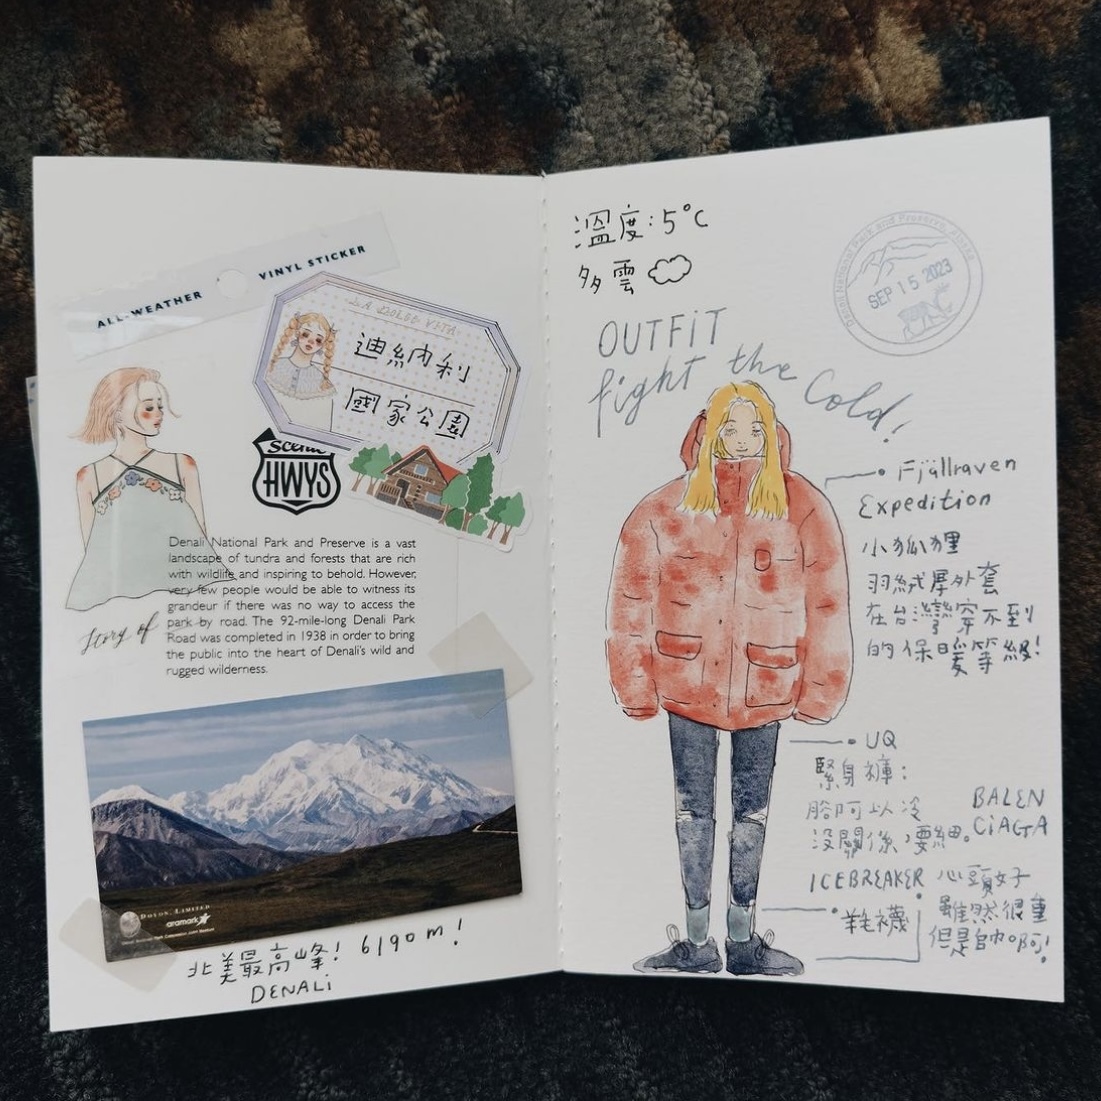 ALL-WEATHER VINYL STICKER
LA DOLCE VITA
迪納利
國家公園
Scenic
HWYS
Denali National Park and Preserve is a vast
landscape of tundra and forests that are rich
with wildlife and inspiring to behold. However,
very few people would be able to witness its
grandeur if there was no way to access the
park by road. The 92-mile-long Denali Park
Road was completed in 1938 in order to bring
the public into the heart of Denali's wild and
rugged wilderness.
Story of
DOYON, LIMITED
aramark
北美最高峰! 6190m!
DENALi
溫度:5°C
多雲
Denali National Park and Preserve, Alaska
SEP 15 2023
OUTFiT
fight the Cold!
Fjällraven
Expedition
小狐狸
羽絨厚外套
在台灣穿不到
的保暖等級!
UQ
緊身褲:
腳可以冷
沒關係,要細。
BALEN
CiAGA
ICEBREAKER
羊毛襪
心頭好
雖然很重
但是帥啊!